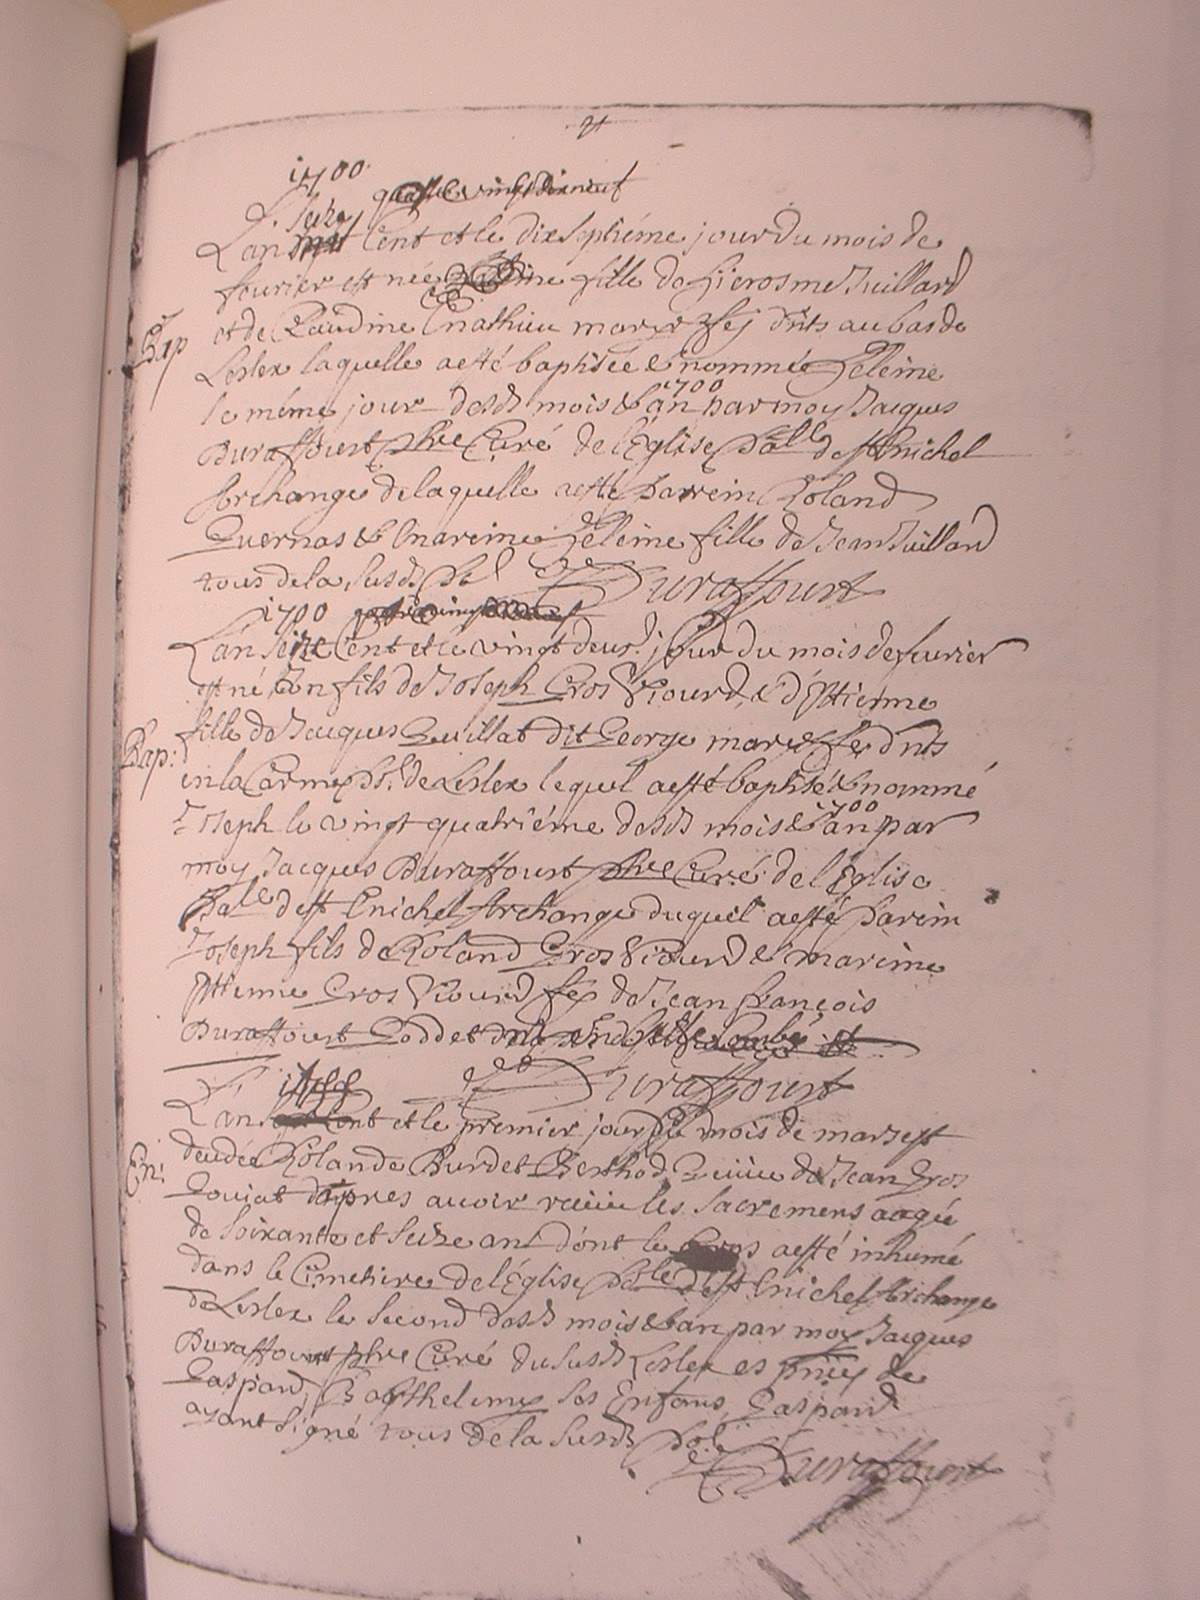 21
1700
quattre vingt dix neuf
Seize
L'an mil Cent et le dix Septiéme jour du mois de
feurier est née fille de Hierosme Juillard
Bap
et de Claudine Mathieu mariez dnts au bas de
Lesler laquelle a esté baptisée & nommée Heleine
1700
le méme jour desd mois & an par moy Jacques
Duraffourt pbre Curé de l'Eglise pалle de st Michel
Archange de laquelle a esté Parrein Roland
Quernas & Mareine Heleine fille de Jean Juillard
tous de la susd pal
Duraffourt
1700
L'an Seize Cent et le vingt deus. jour du mois de feurier
est né Un fils de Joseph Gros Piourd, & d'Ettienne
fille de Jacques Quillat dit George mariez dnts
Bap:
en la de Lesler lequel a esté baptisé & nommé
1700
Joseph le vingt quatriéme desd mois & an par
moy Jacques Duraffourt pbre Curé de l'Eglise
Palle de st Michel Archange duquel a esté Parein
Joseph fils de Roland Gros Piourd & mareine
Ettienne Gros Piourd de Jean françois
Duraffourt Goddet
Duraffourt
L'an Cent et le premier jour du mois de mars est
decedée Rolande Burdet Berthod veuve de Jean Gros
Goujat d'apres auoir receu les sacremens aagée
de soixante et seize ans dont le Corps a esté inhumé
dans le Cimetiere de l'Eglise pale de st Michel Archange
de Lesler le second desd mois & an par moy Jacques
Duraffourt pbre Curé du susd Lesler es de
Gaspard, Barthelemy ses Enfans, Gaspard
ayant signé tous de la susd
Duraffourt